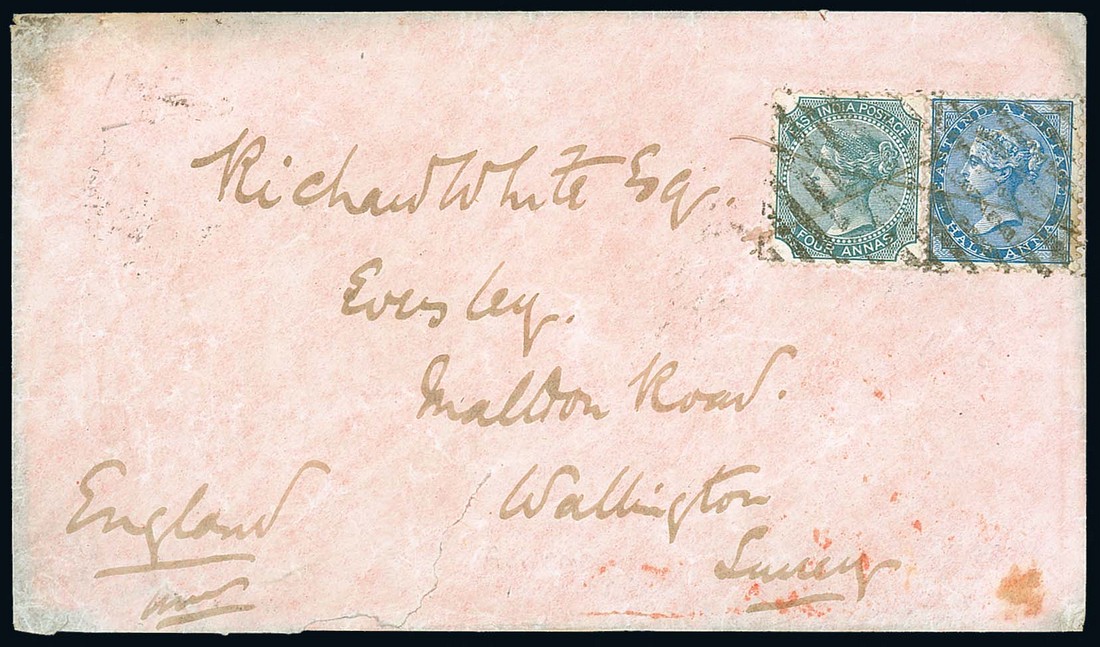 EAST INDIA POSTAGE
FOUR ANNAS
EAST INDIA POSTAGE
HALF ANNA
Richard White Esq.
Eversley.
Malldon Road.
Wallington
Surrey
England